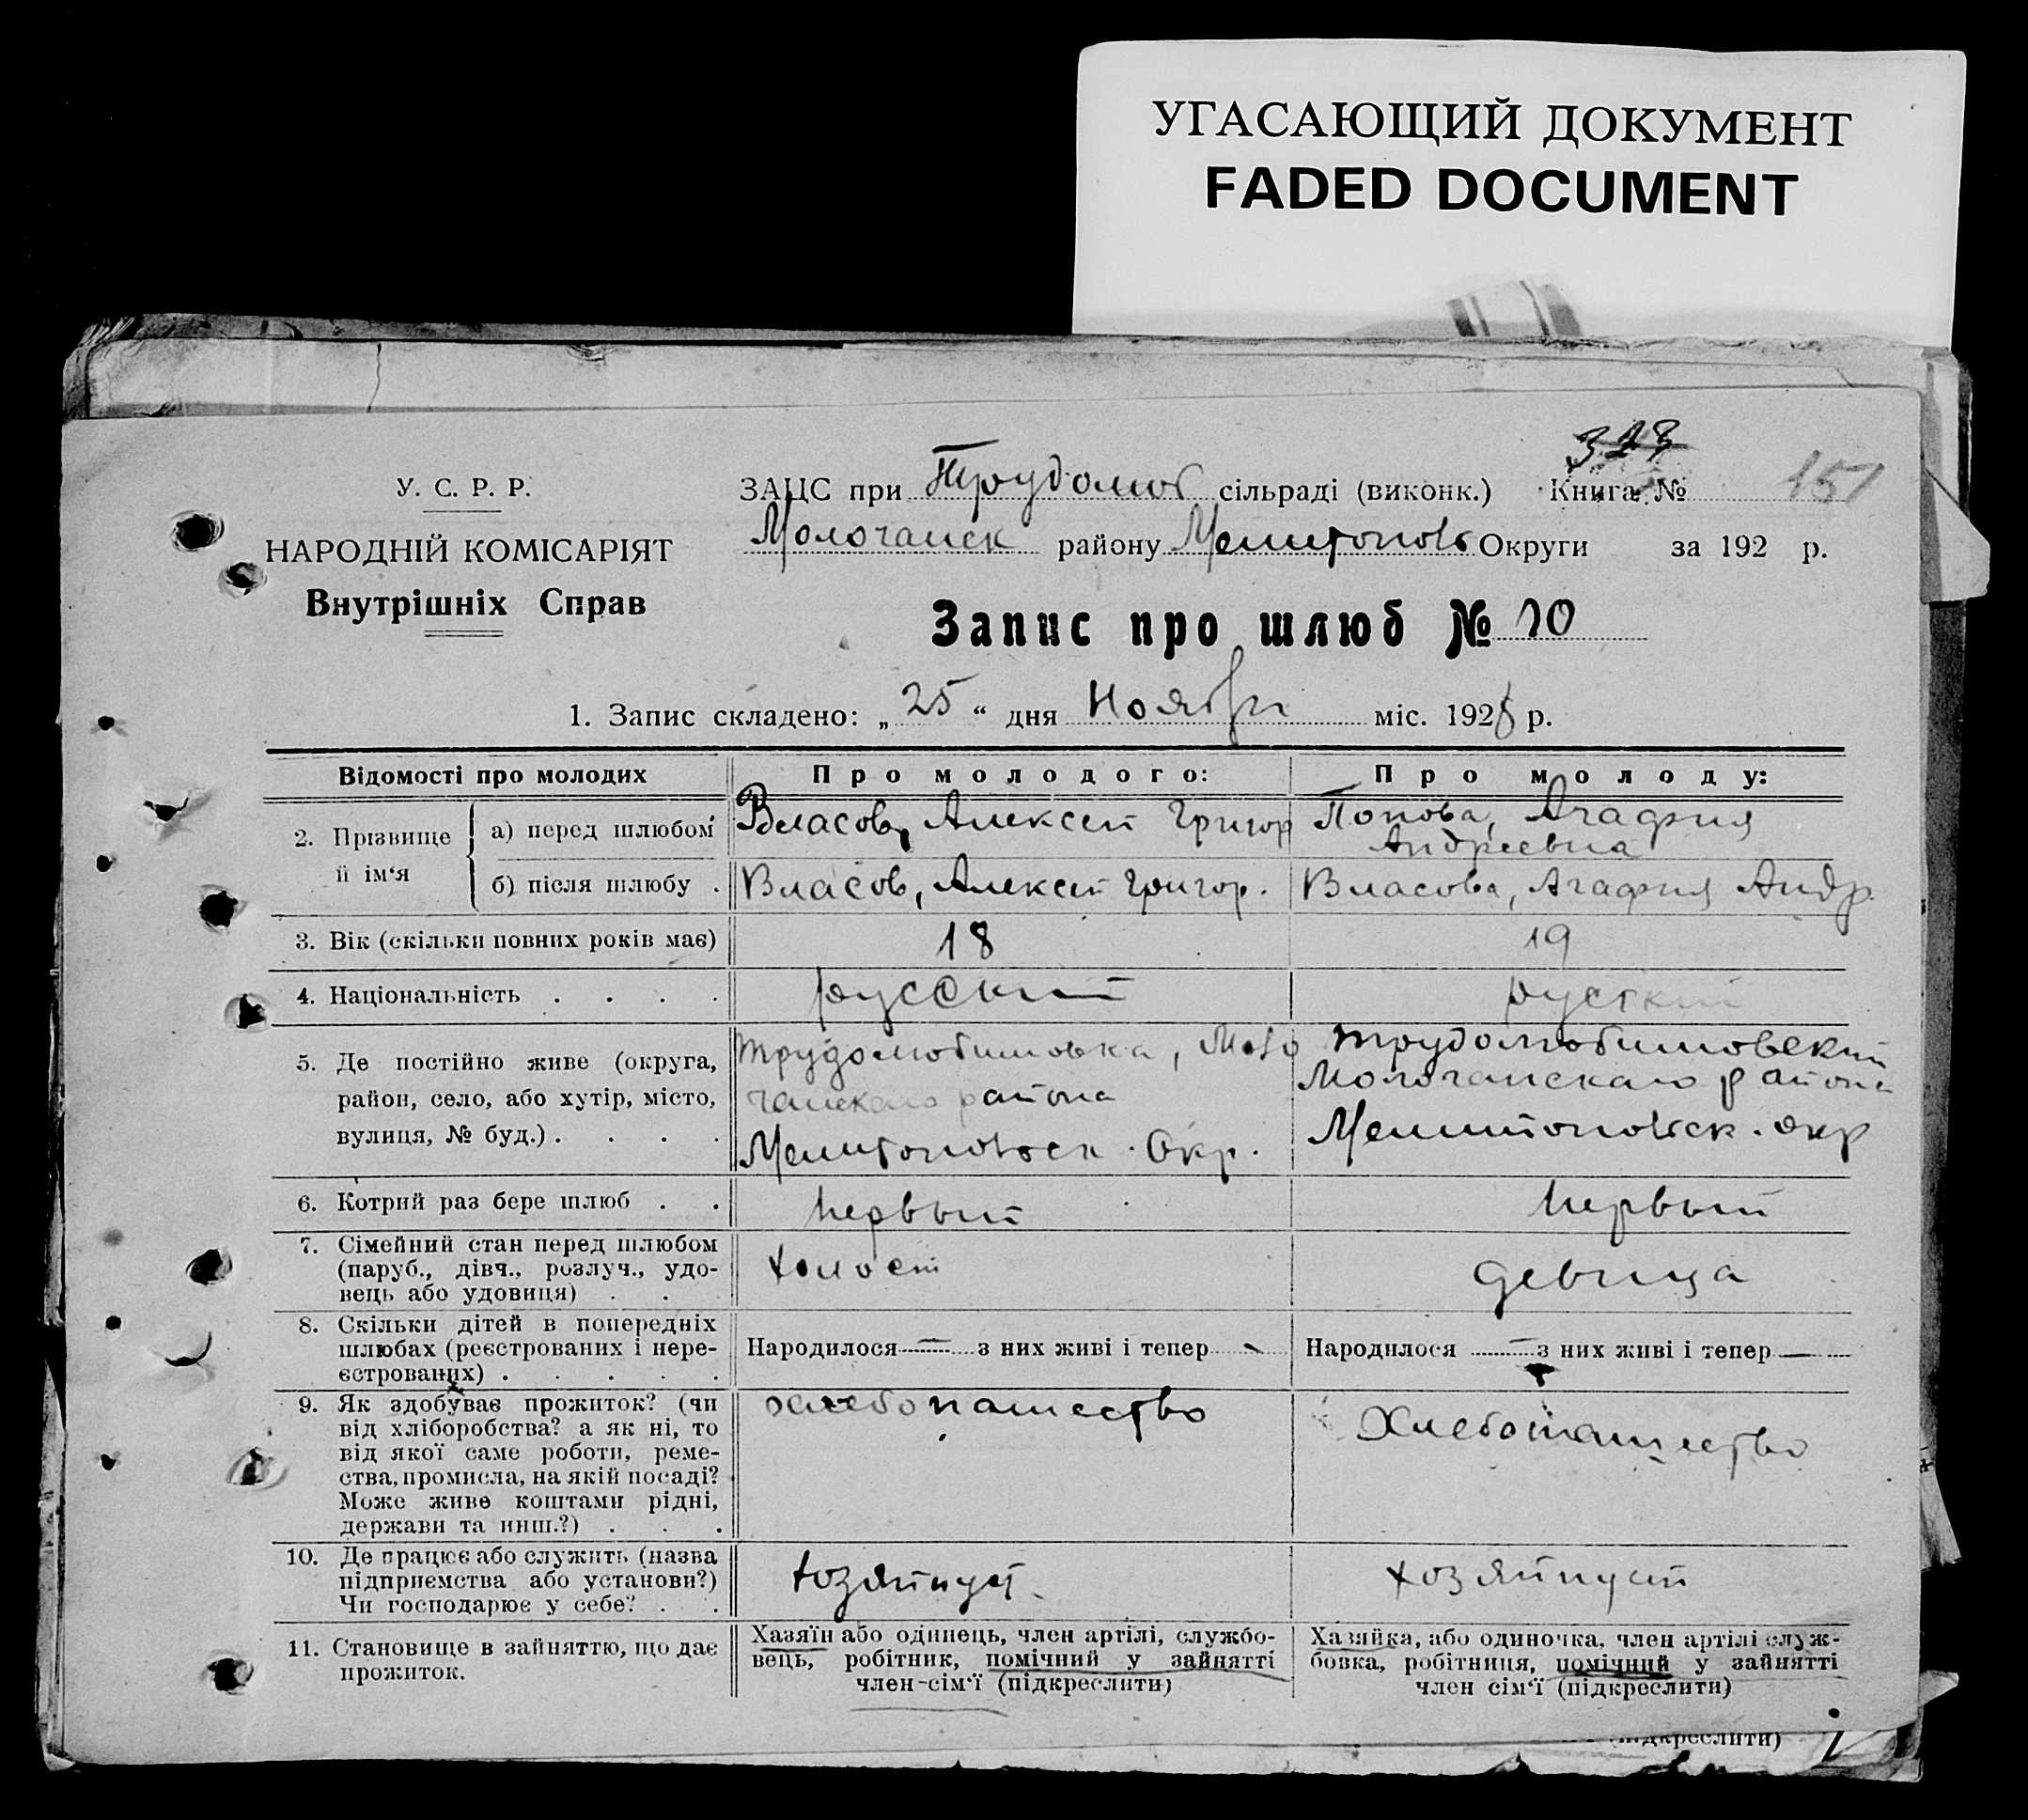 УГАСАЮЩИЙ ДОКУМЕНТ
FADED DOCUMENT
У. С. Р. Р.
НАРОДНІЙ КОМІСАРІЯТ
Внутрішніх Справ
ЗАЦС при Трудолюб сільраді (виконк.) Книга №
151
Молочанск району Мелитоповс Округи за 192 р.
Запис про шлюб № 10
1. Запис складено: „ 25 “ дня Ноября міс. 192 р.
Відомості про молодих
Про молодого:
Про молоду:
2. Прізвище й ім‘я
а) перед шлюбом
Власов, Алексей Григор
Попова, Агафия
Андреевна
б) після шлюбу .
Власов, Алексей Григор.
Власова, Агафия Андр.
3. Вік (скільки повних років має)
18
19
4. Національність . . . .
русский
руский
5. Де постійно живе (округа,
район, село, або хутір, місто,
вулиця, № буд.) . . . .
Трудолюбимовка, Моло
чанскаго района
Мелитоповск. Окр.
Трудолюбимовский
Молочанскаго района
Мелитоповск. окр
6. Котрий раз бере шлюб . .
первый
первый
7. Сімейний стан перед шлюбом
(паруб., дівч., розлуч., удо-
вець або удовиця) . .
холост
девица
8. Скільки дітей в попередніх
шлюбах (реєстрованих і нере-
єстрованих) . . . . .
Народилося — з них живі і тепер —
Народилося — з них живі і тепер —
9. Як здобуває прожиток? (чи
від хліборобства? а як ні, то
від якої саме роботи, реме-
ства, промисла, на якій посаді?
Може живе коштами рідні,
держави та инш.?) . . .
хлебопашество
Хлебопашество
10. Де працює або служить (назва
підприємства або установи?)
Чи господарює у себе? . .
хозяйнует.
хозяйнуит
11. Становище в зайняттю, що дає
прожиток.
Хазяїн або одинець, член артілі, службо-
вець, робітник, помічний у зайнятті
член-сім‘ї (підкреслити)
Хазяйка, або одиночка, член артілі служ-
бовка, робітниця, помічний у зайнятті
член сім‘ї (підкреслити)
(підкреслити)